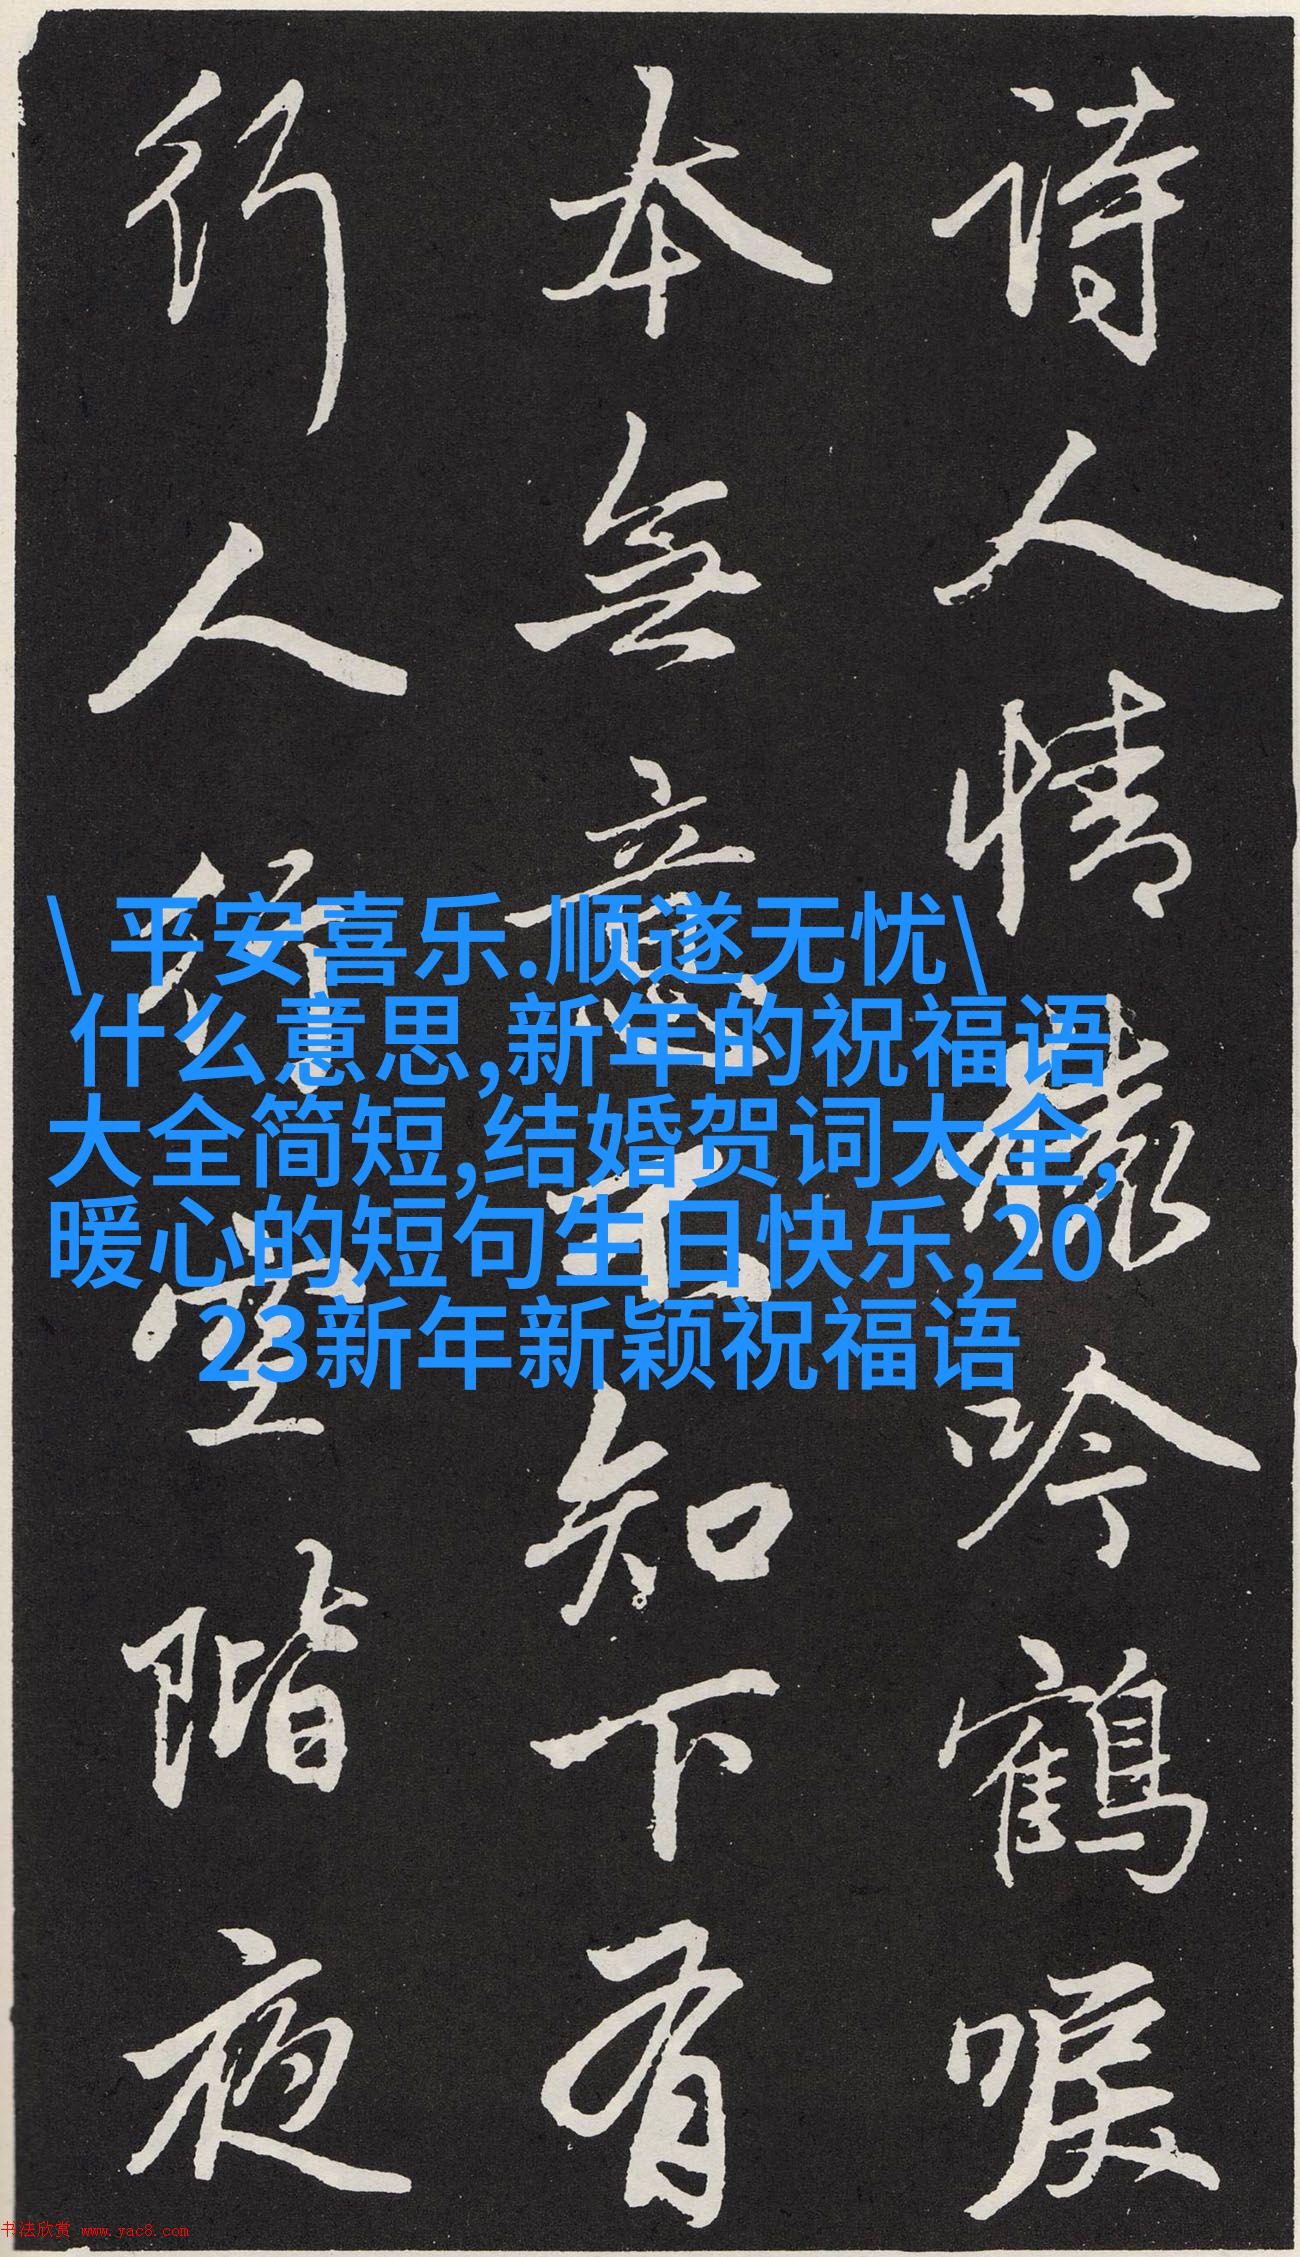 詩人情猿吟鶴唳
本無意不知下有
行人行空階夜
\ 平安喜乐.顺遂无忧\
什么意思,新年的祝福语
大全简短,结婚贺词大全,
暖心的短句生日快乐,20
23新年新颖祝福语
书法欣赏 www.yac8.com